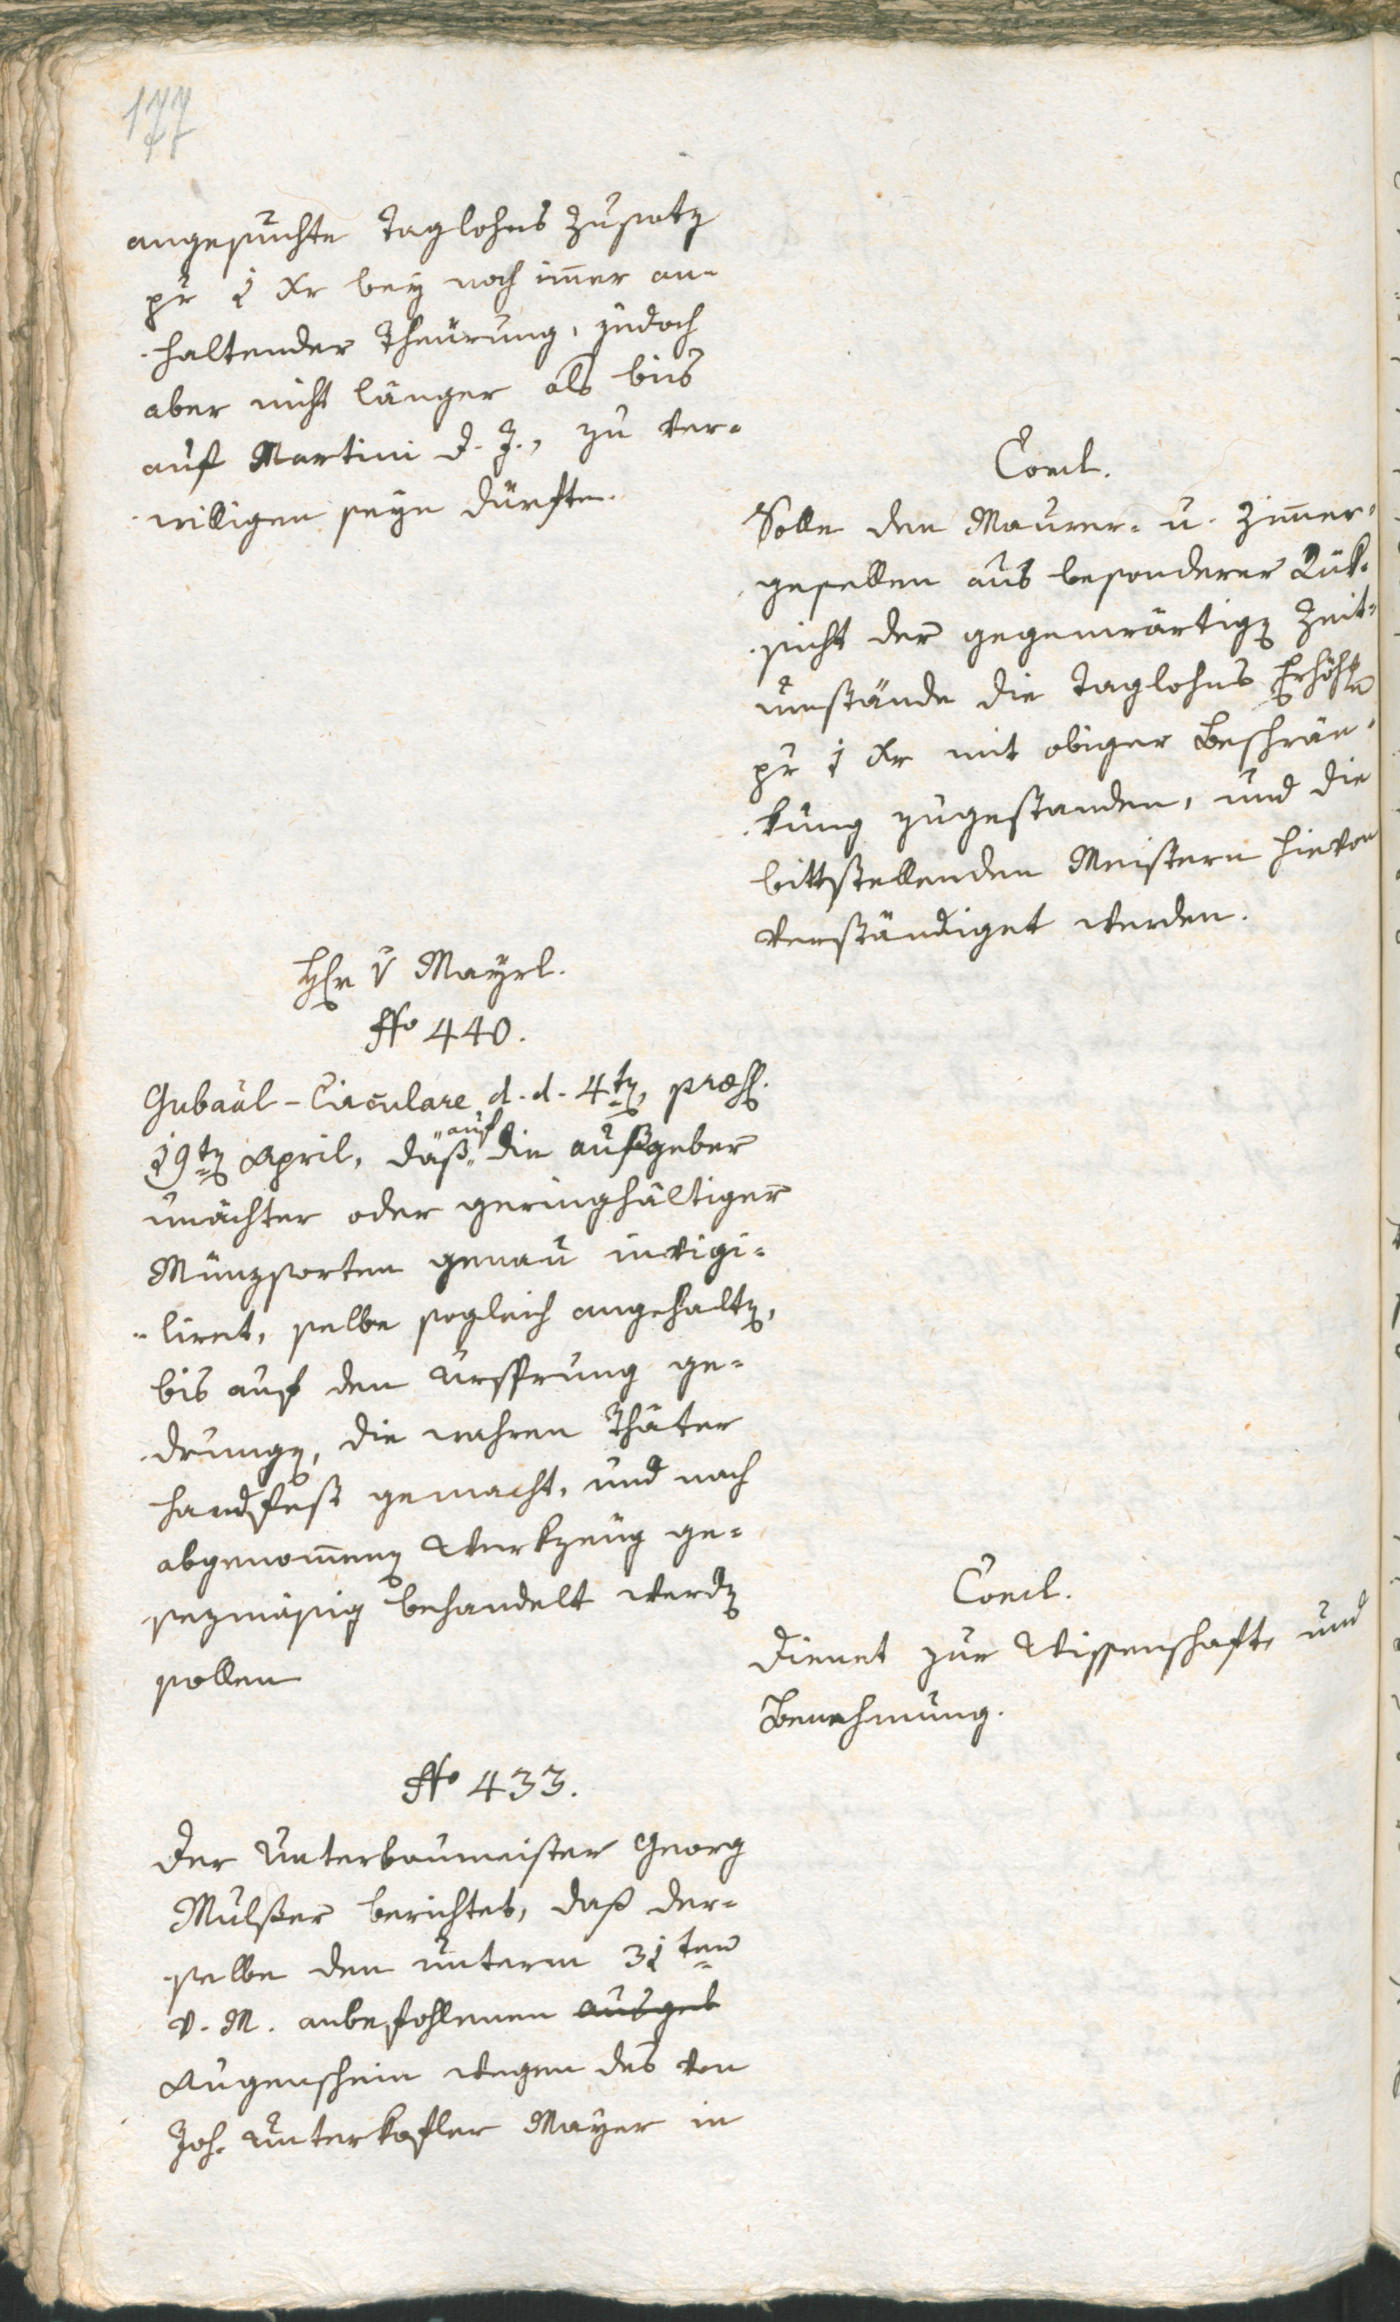 177
angesuchte Taglohns Zusatz
pr 1 Xr bey noch im̄er an-
haltender Theürung, jedoch
aber nicht länger als bis
auf Martini d. J., zu ver-
willigen seyn dürfte.
Concl.
Solle den Maurer- u. Zim̄er-
gesellen aus besonderer Rük-
sicht der gegenwärtigen Zeit-
umstände die Taglohns Erhöh
pr 1 Xr mit obiger Beschrän-
kung zugestanden, und die
bittstellenden Meistern hievon
verständiget werden.
Hr v Mayrl.
No 440.
Gubaãl-Circulare d. d. 4ten, præs.
19ten April, daß „auf die aufgeber
unächter oder geringhältiger
Münzsorten genau invigi-
liret, selbe sogleich angehalten,
bis auf den Ursprung ge-
drungen, die wahren Thäter
handfest gemacht, und nach
abgenom̄enen Werkzeug ge-
sezmäsig behandelt werden
sollen
Concl.
Dienet zur Wissenschaft, und
Benehmung.
No 433.
Der Unterbaumeister Georg
Mulßer berichtet, daß der-
selbe den unterm 31ten
v. M. anbefohlenen ausgeb
Augenschein wegen des von
Joh. Unterkofler Mayer in